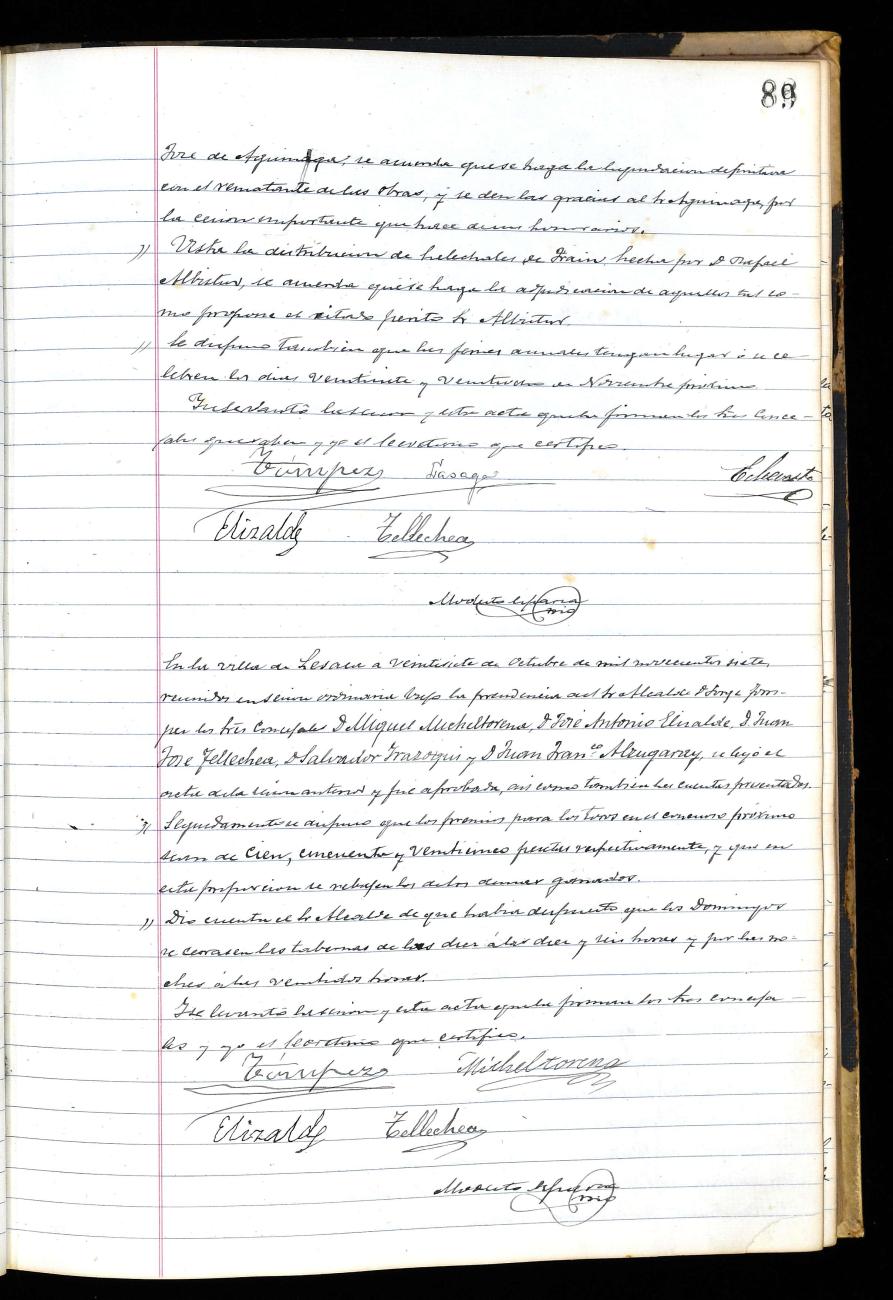 89
José de Aguinaga, se acuerda que se haga la liquidacion definitiva
con el rematante de las obras, y se den las gracias al Sr Aguinaga, por
la cesion importante que hace de sus honorarios.
" Vista la distribucion de helechales de Frain, hecha por D Rafael
Albistur, se acuerda que se haga la adjudicacion de aquellos tal co-
mo propone el citado perito Sr Albistur.
" Se dispuso tambien que las ferias anuales tengan lugar ó se ce-
lebren los dias veintisiete y veintiocho de Noviembre próximo
Y se levantó la sesion y esta acta que la firman los Sres Conce-
jales que saben y yo el Secretario que certifico.
Tómperz Sasaga Echeveste
Elizalde Tellechea
Modesto Esparza
srio
En la villa de Lesaca a veintisiete de Octubre de mil novecientos siete,
reunidos en sesion ordinaria bajo la presidencia del Sr Alcalde D Jorge Tom-
perz los Sres Concejales D Miguel Micheltorena, D José Antonio Elizalde, D Juan
José Tellechea, D Salvador Irazoqui y D Juan Franco Alzugaray, se leyó el
acta de la sesion anterior y fue aprobada, asi como tambien las cuentas presentadas.
" Seguidamente se dispuso que los premios para los toros en el concurso próximo
sean de cien, cincuenta y veinticinco pesetas respectivamente, y que en
esta proporcion se rebajen los de los demas ganados.
" Dio cuenta el Sr Alcalde de que habia dispuesto que los Domingos
se cerasen las tabernas de las diez á las diez y seis horas y por las no-
ches á las veintidos horas.
Y se levantó la sesion y esta acta que la firman los Sres conceja-
les y yo el Secretario que certifico.
Tómperz Micheltorena
Elizalde Tellechea
Modesto Esparza
srio